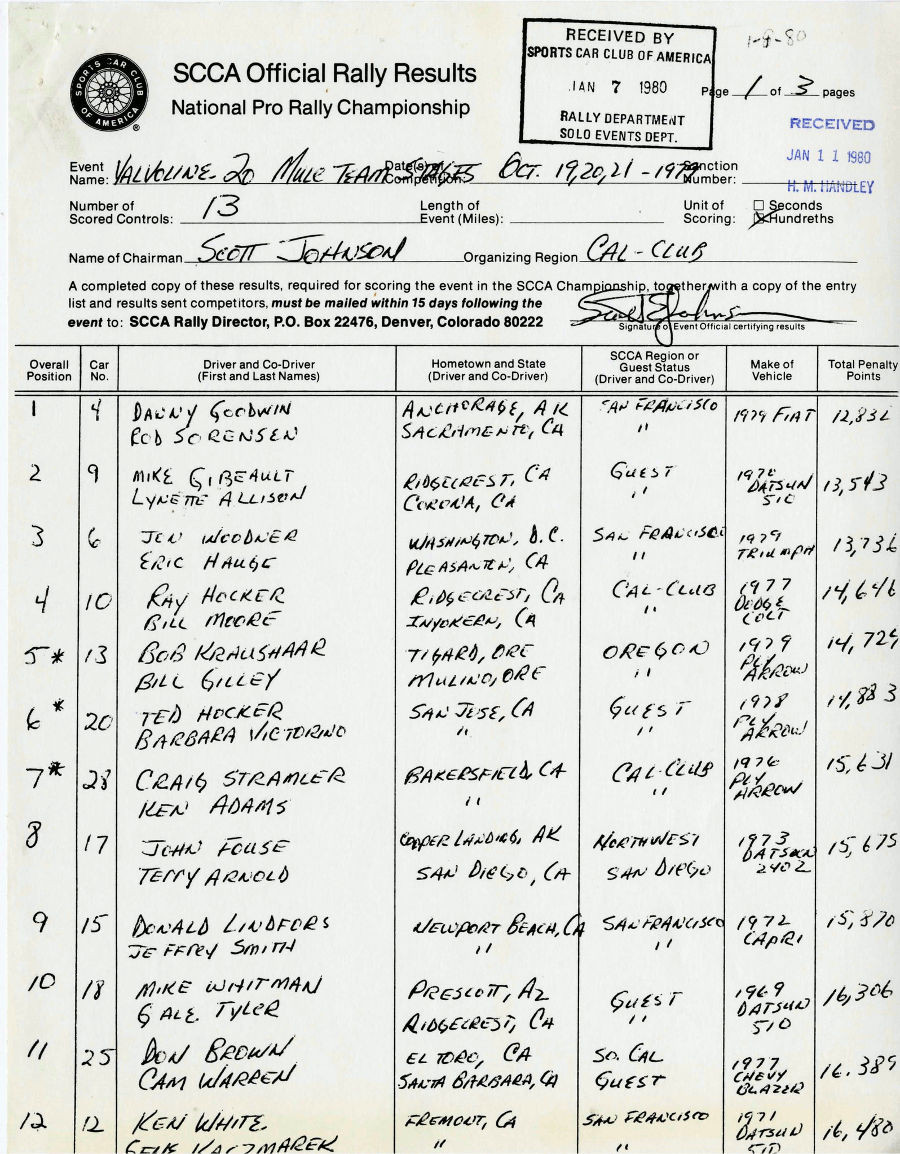 RECEIVED BY
SPORTS CAR CLUB OF AMERICA
JAN 7 1980
RALLY DEPARTMENT
SOLO EVENTS DEPT.
1-9-80
SPORTS CAR CLUB
OF AMERICA
®
SCCA Official Rally Results
National Pro Rally Championship
Page 1 of 3 pages
RECEIVED
JAN 11 1980
H. M. HANDLEY
Event Name: VALVOLINE-20 MULE TEAM STAGES Date(s) of Competition: OCT. 19,20,21-1979 Sanction Number:
Number of Scored Controls: 13 Length of Event (Miles): Unit of Scoring: Seconds Hundreths
Name of Chairman SCOTT JOHNSON Organizing Region CAL-CLUB
A completed copy of these results, required for scoring the event in the SCCA Championship, together with a copy of the entry
list and results sent competitors, must be mailed within 15 days following the
event to: SCCA Rally Director, P.O. Box 22476, Denver, Colorado 80222
Signature of Event Official certifying results
Overall Position Car No. Driver and Co-Driver (First and Last Names) Hometown and State (Driver and Co-Driver) SCCA Region or Guest Status (Driver and Co-Driver) Make of Vehicle Total Penalty Points
1 4 DANNY GOODWIN ANCHORAGE, AK SAN FRANCISCO 1979 FIAT 12,832
ROD SORENSEN SACRAMENTO, CA "
2 9 MIKE GIBEAULT RIDGECREST, CA GUEST 1970 DATSUN 510 13,543
LYNETTE ALLISON CORONA, CA "
3 6 JON WOODNER WASHINGTON, D.C. SAN FRANCISCO 1979 TRIUMPH 13,736
ERIC HAUGE PLEASANTON, CA "
4 10 RAY HOCKER RIDGECREST, CA CAL-CLUB 1977 DODGE COLT 14,646
BILL MOORE INYOKERN, CA "
5* 13 BOB KRAUSHAAR TIGARD, ORE OREGON 1979 PLY ARROW 14,724
BILL GILLEY MULINO, ORE "
6* 20 TED HOCKER SAN JOSE, CA GUEST 1978 PLY ARROW 14,883
BARBARA VICTORINO " "
7* 28 CRAIG STRAMLER BAKERSFIELD, CA CAL-CLUB 1976 PLY ARROW 15,631
KEN ADAMS " "
8 17 JOHN FOUSE COOPER LANDING, AK NORTHWEST 1973 DATSUN 240Z 15,675
TERRY ARNOLD SAN DIEGO, CA SAN DIEGO
9 15 DONALD LINDFORS NEWPORT BEACH, CA SAN FRANCISCO 1972 CAPRI 15,870
JEFFRY SMITH " "
10 18 MIKE WHITMAN PRESCOTT, AZ GUEST 1969 DATSUN 510 16,306
GALE TYLER RIDGECREST, CA "
11 25 DON BROWN EL TORO, CA SO. CAL 1977 CHEVY BLAZER 16.389
CAM WARREN SANTA BARBARA, CA GUEST
12 12 KEN WHITE FREMONT, CA SAN FRANCISCO 1971 DATSUN 510 16,480
KACZMAREK " "